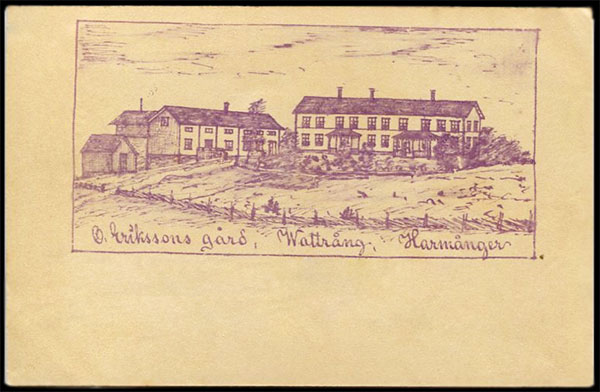 O. Erikssons gård, Wattrång, Harmånger